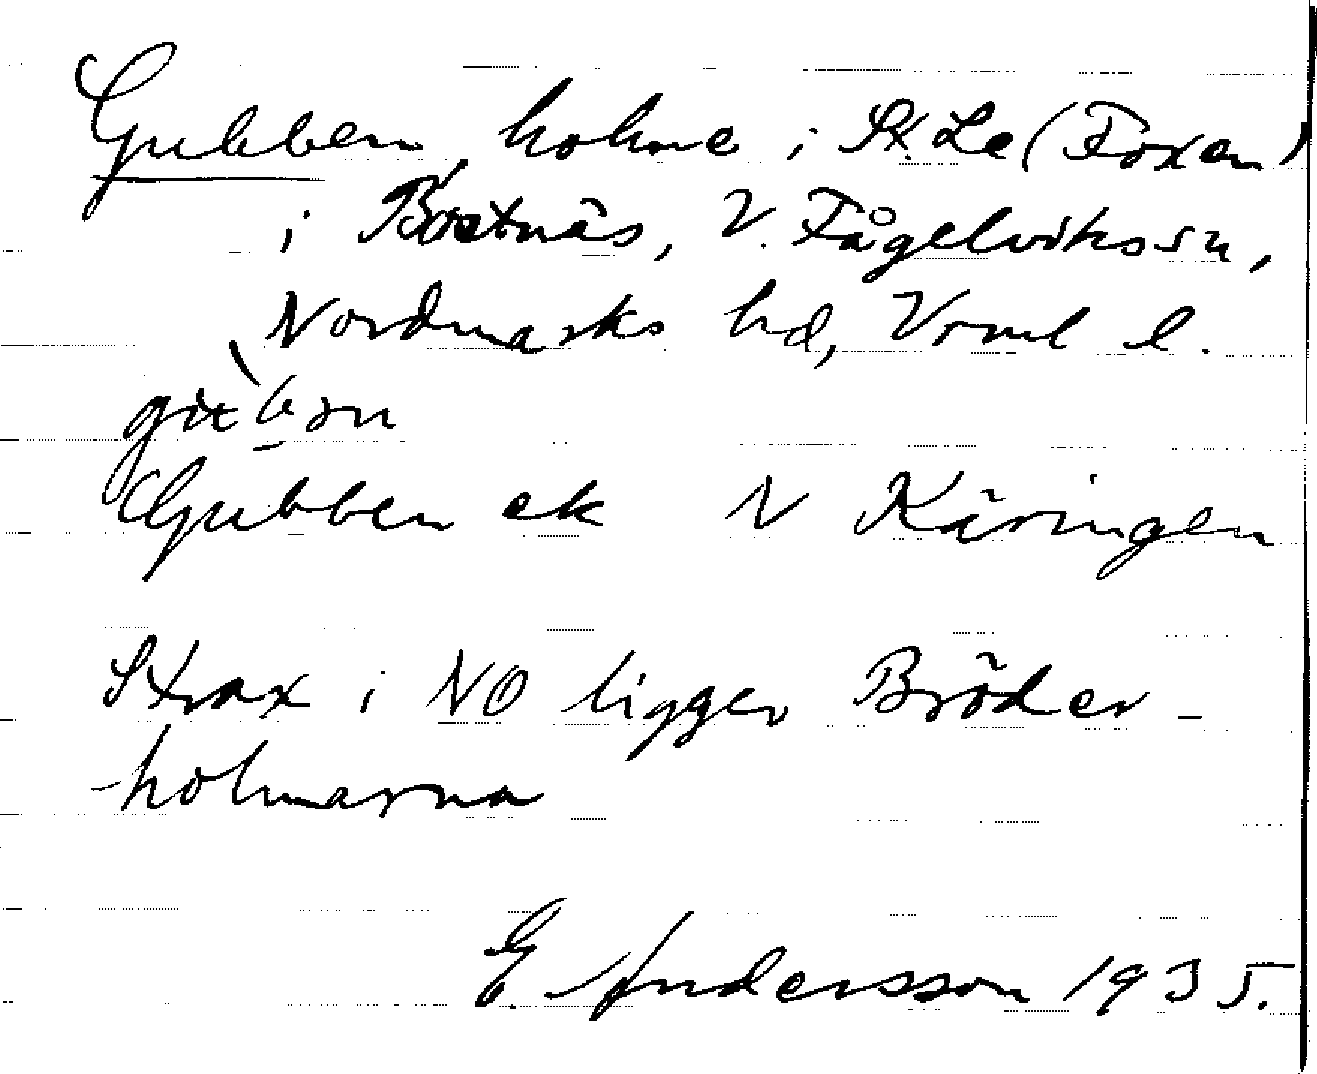 Gubben, holme i St. Le (Foxen)
i Bøstnäs, V. Fågelvikssn,
Nordmarks hd, Vrml l.
Gubben ek N Käringen
Strax i NO ligger Bröder-
-holmarna
E. Andersson 1935.